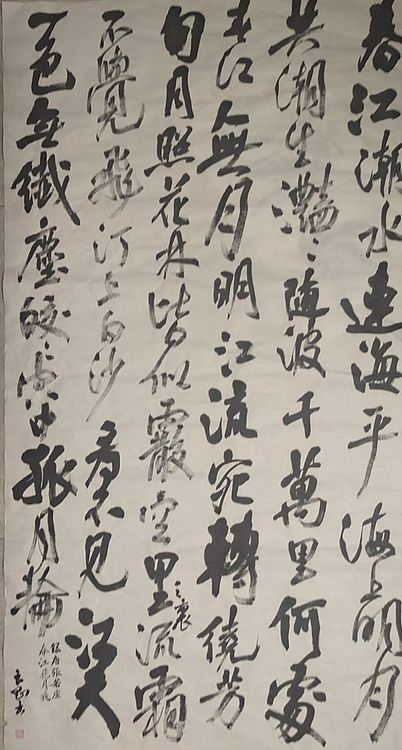 春江潮水連海平海上明月
共潮生灩〻隨波千萬里何處
春江無月明江流宛轉繞芳
甸月照花林皆似霰空里流霜
不覺飛汀上白沙看不見江天
一色無纖塵皎〻空中孤月輪
錄唐張若虛
春江花月夜